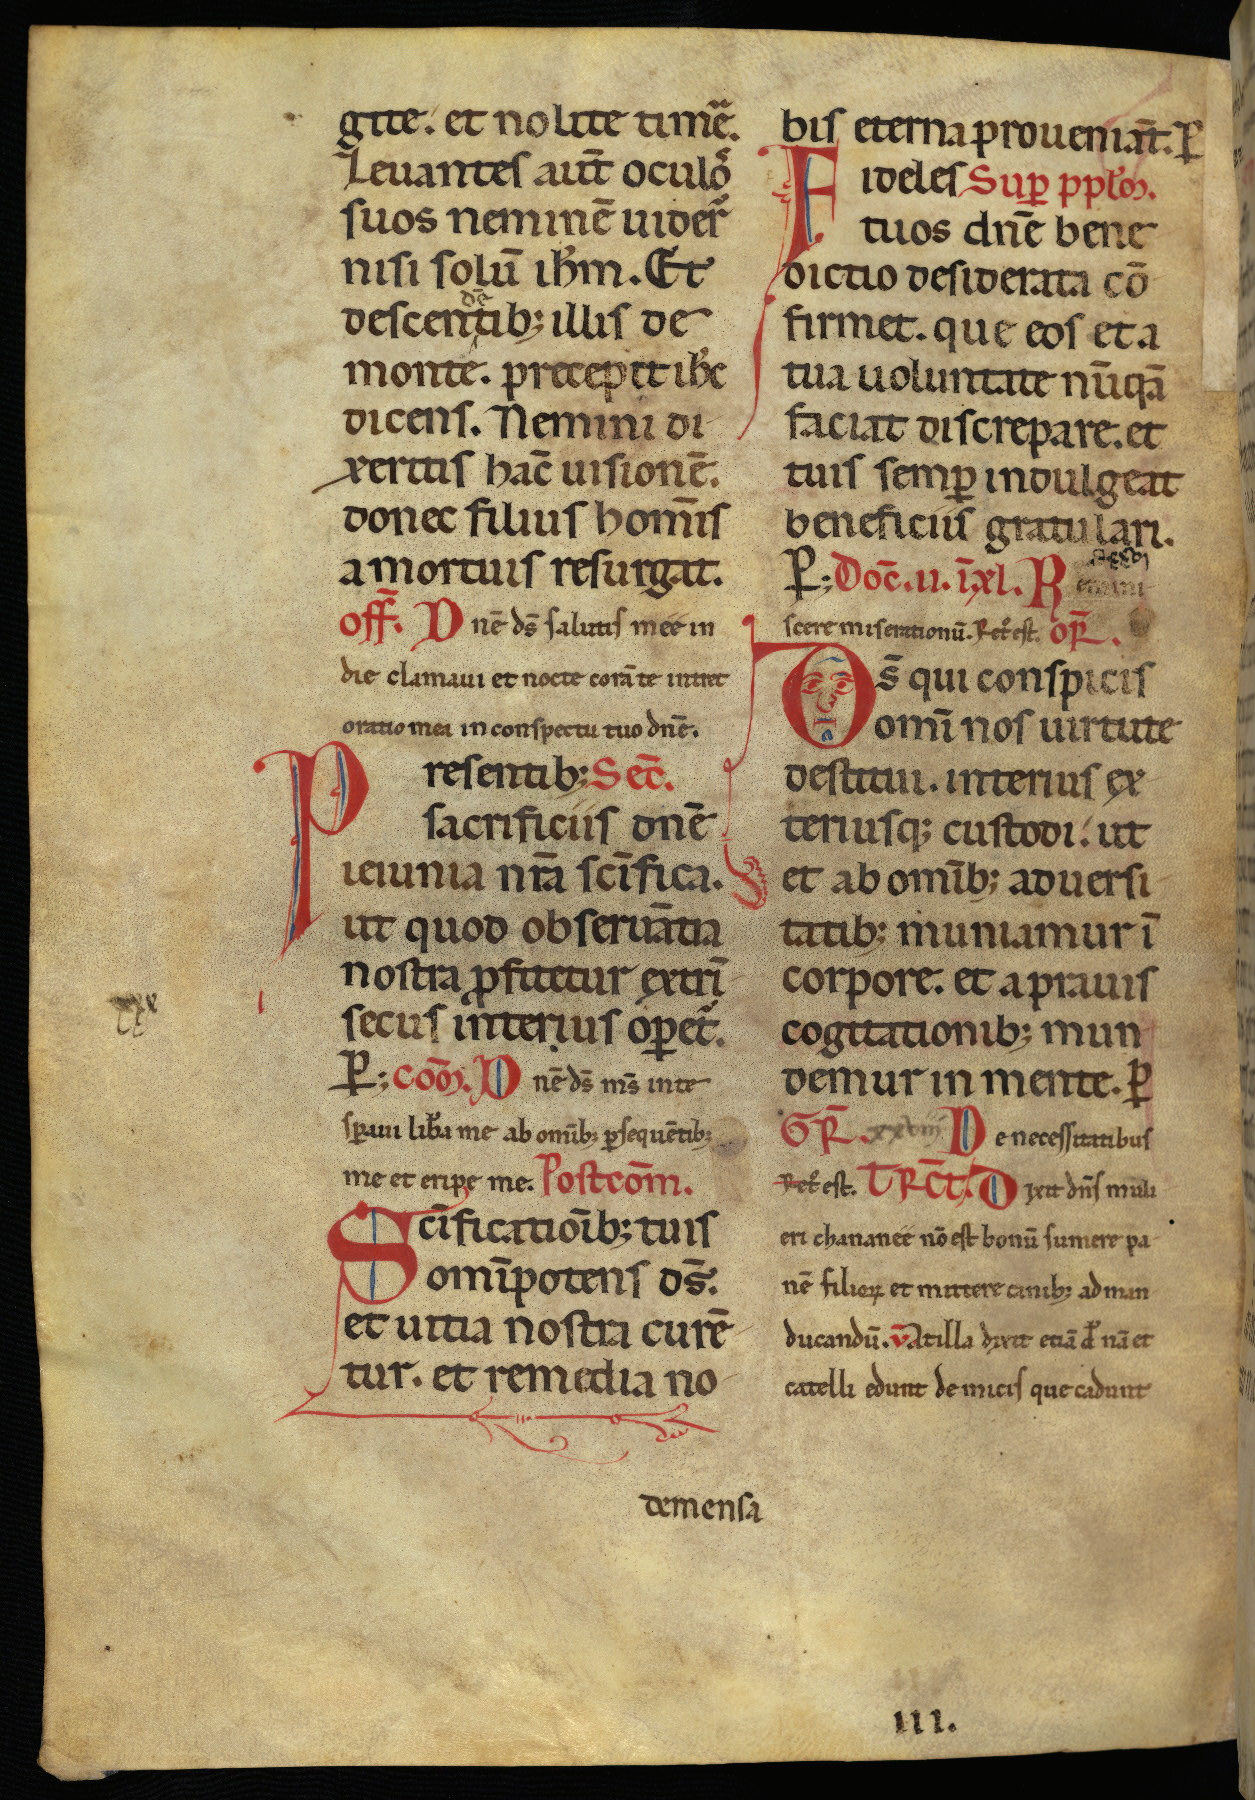 gite. et nolite timẽ.
Leuantes aut̃ oculõ
suos neminẽ uider̃
nisi solũ ihm̃. Et
dẽ
descentib; illis de
monte. precepit ihc̃
dicens. Nemini di
xeritis hac̃ uisionẽ.
donec filius homĩs
a mortuis resurgat.
off̃. Dnẽ ds̃ salutis meẽ in
die clamaui et nocte corã te intret
oratio mea in conspectu tuo dnẽ.
Presentib; Sec̃.
sacrificiis dnẽ
ieiunia nr̃a scĩfica.
ut quod obseruãtia
nostra ꝓfitetur extrĩ
secus interius oꝑet̃.
P̃; com̃. Dnẽ ds̃ ms̃ in te
sꝑaui lib̃a me ab omĩb; ꝑsequẽtib;
me et eripe me. Postcom̃.
Scĩficatioĩb; tuis
omĩpotens ds̃.
et uitia nostra curẽ
tur. et remedia no
bis eterna proueniãt. P̃
Fideles Suꝑ ppl̃m.
tuos dnẽ bene
dictio desiderata cõ
firmet. que eos et a
tua uoluntate nũqã
faciat discrepare. et
tuis semꝑ indulgeat
beneficiis gratulari.
P̃; Doc̃. ii. ĩ xl. R emini
scere miserationũ. Ret̃ est. or̃.
Ds̃ qui conspicis
omĩ nos uirtute
destitui. interius ex
teriusq; custodi. ut
et ab omĩb; aduersi
tatib; muniamur ĩ
corpore. et a prauis
cogitationib; mun
demur in mente. P̃
Gr̃. xxviii De necessitatibus
Ret̃ est. Trc̃t. Dixit dñs muli
eri chananeẽ nõ est bonũ sumere pa
nẽ filioꝝ et mittere canib; ad man
ducandũ. v̄. At illa dixit etiã d̃ nã et
catelli edunt de micis que cadunt
de mensa
III.